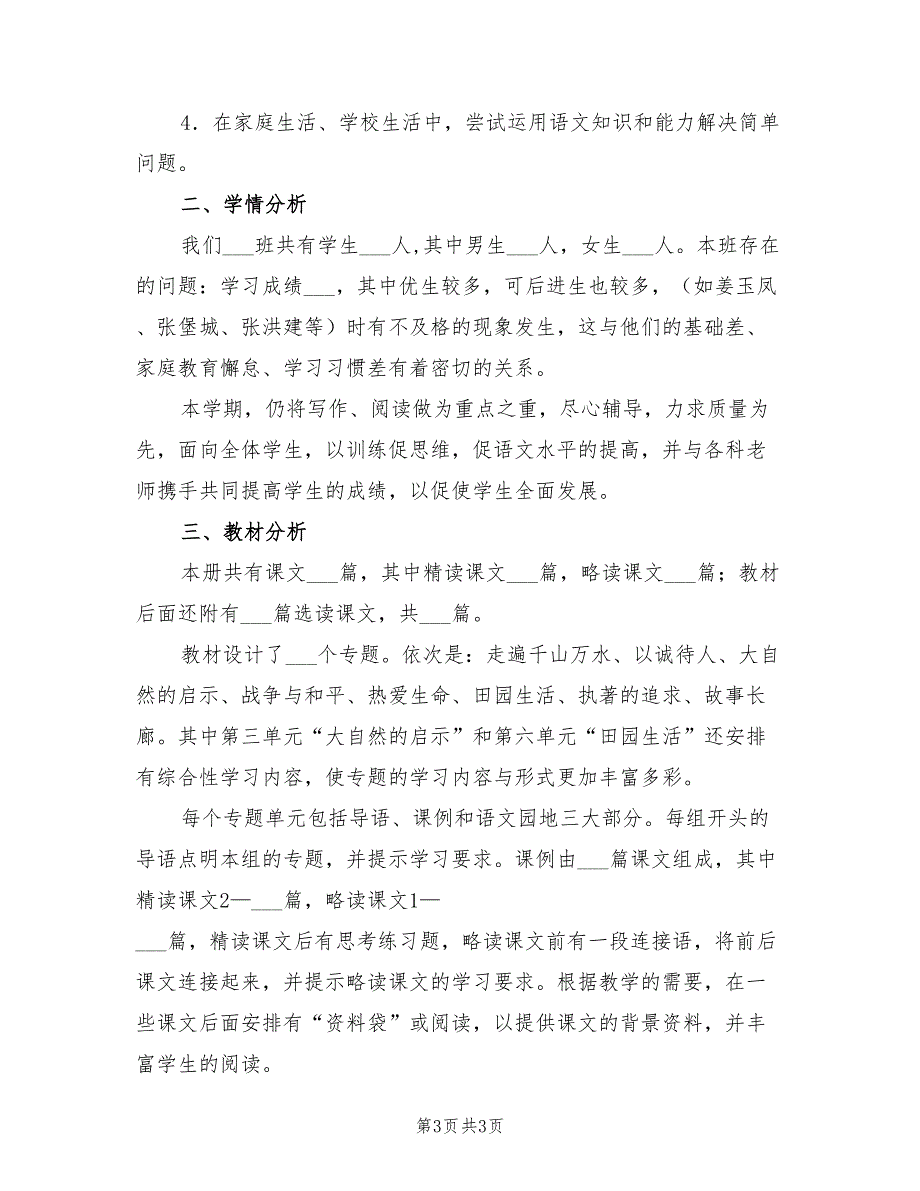 4．在家庭生活、学校生活中，尝试运用语文知识和能力解决简单
问题。
二、学情分析
我们___班共有学生___人,其中男生___人，女生___人。本班存在
的问题：学习成绩___，其中优生较多，可后进生也较多，（如姜玉凤
、张堡城、张洪建等）时有不及格的现象发生，这与他们的基础差、
家庭教育懈怠、学习习惯差有着密切的关系。
本学期，仍将写作、阅读做为重点之重，尽心辅导，力求质量为
先，面向全体学生，以训练促思维，促语文水平的提高，并与各科老
师携手共同提高学生的成绩，以促使学生全面发展。
三、教材分析
本册共有课文___篇，其中精读课文___篇，略读课文___篇；教材
后面还附有___篇选读课文，共___篇。
教材设计了___个专题。依次是：走遍千山万水、以诚待人、大自
然的启示、战争与和平、热爱生命、田园生活、执著的追求、故事长
廊。其中第三单元“大自然的启示”和第六单元“田园生活”还安排
有综合性学习内容，使专题的学习内容与形式更加丰富多彩。
每个专题单元包括导语、课例和语文园地三大部分。每组开头的
导语点明本组的专题，并提示学习要求。课例由___篇课文组成，其中
精读课文2—___篇，略读课文1—
___篇，精读课文后有思考练习题，略读课文前有一段连接语，将前后
课文连接起来，并提示略读课文的学习要求。根据教学的需要，在一
些课文后面安排有“资料袋”或阅读，以提供课文的背景资料，并丰
富学生的阅读。
第3页 共3页